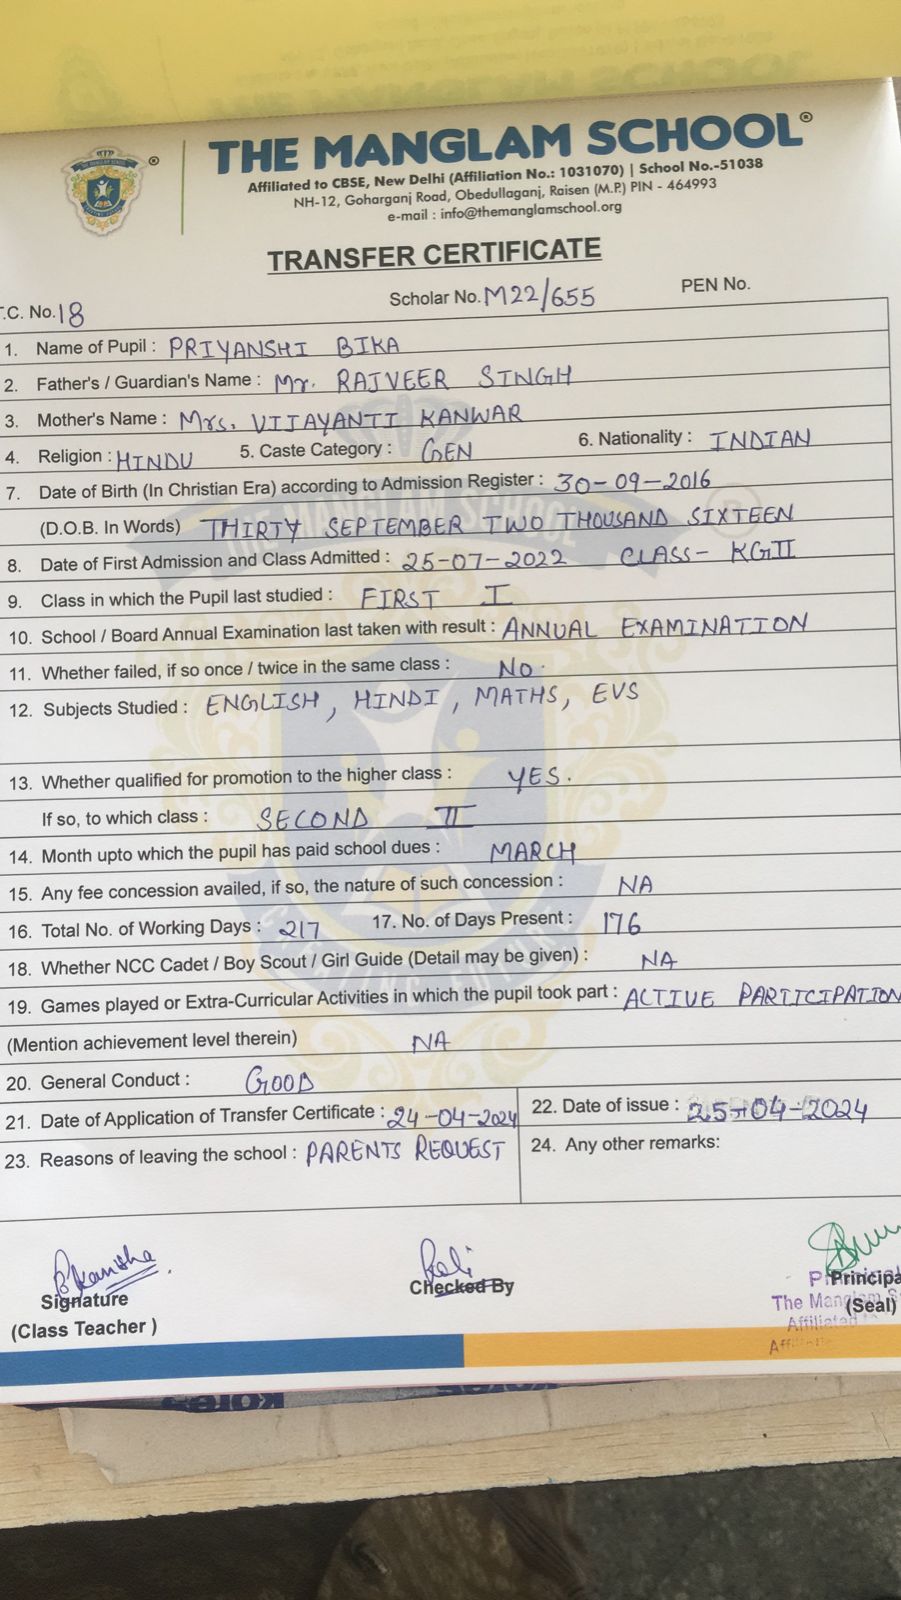 THE MANGLAM SCHOOL®
Affiliated to CBSE, New Delhi (Affiliation No.: 1031070) | School No.-51038
NH-12, Goharganj Road, Obedullaganj, Raisen (M.P.) PIN - 464993
e-mail : info@themanglamschool.org
TRANSFER CERTIFICATE
T.C. No. 18 Scholar No. M22/655 PEN No.
1. Name of Pupil : PRIYANSHI BIKA
2. Father's / Guardian's Name : Mr. RAJVEER SINGH
3. Mother's Name : Mrs. VIJAYANTI KANWAR
4. Religion : HINDU 5. Caste Category : GEN 6. Nationality : INDIAN
7. Date of Birth (In Christian Era) according to Admission Register : 30-09-2016
(D.O.B. In Words) THIRTY SEPTEMBER TWO THOUSAND SIXTEEN
8. Date of First Admission and Class Admitted : 25-07-2022 CLASS- KGII
9. Class in which the Pupil last studied : FIRST I
10. School / Board Annual Examination last taken with result : ANNUAL EXAMINATION
11. Whether failed, if so once / twice in the same class : NO.
12. Subjects Studied : ENGLISH, HINDI, MATHS, EVS
13. Whether qualified for promotion to the higher class : YES.
If so, to which class : SECOND II
14. Month upto which the pupil has paid school dues : MARCH
15. Any fee concession availed, if so, the nature of such concession : NA
16. Total No. of Working Days : 217 17. No. of Days Present : 176
18. Whether NCC Cadet / Boy Scout / Girl Guide (Detail may be given) : NA
19. Games played or Extra-Curricular Activities in which the pupil took part : ACTIVE PARTICIPATION
(Mention achievement level therein) NA
20. General Conduct : GOOD
21. Date of Application of Transfer Certificate : 24-04-2024 22. Date of issue : 25-04-2024
23. Reasons of leaving the school : PARENTS REQUEST 24. Any other remarks:
Signature
(Class Teacher )
Checked By
Principa
(Seal)
The Manglam S
Affiliated